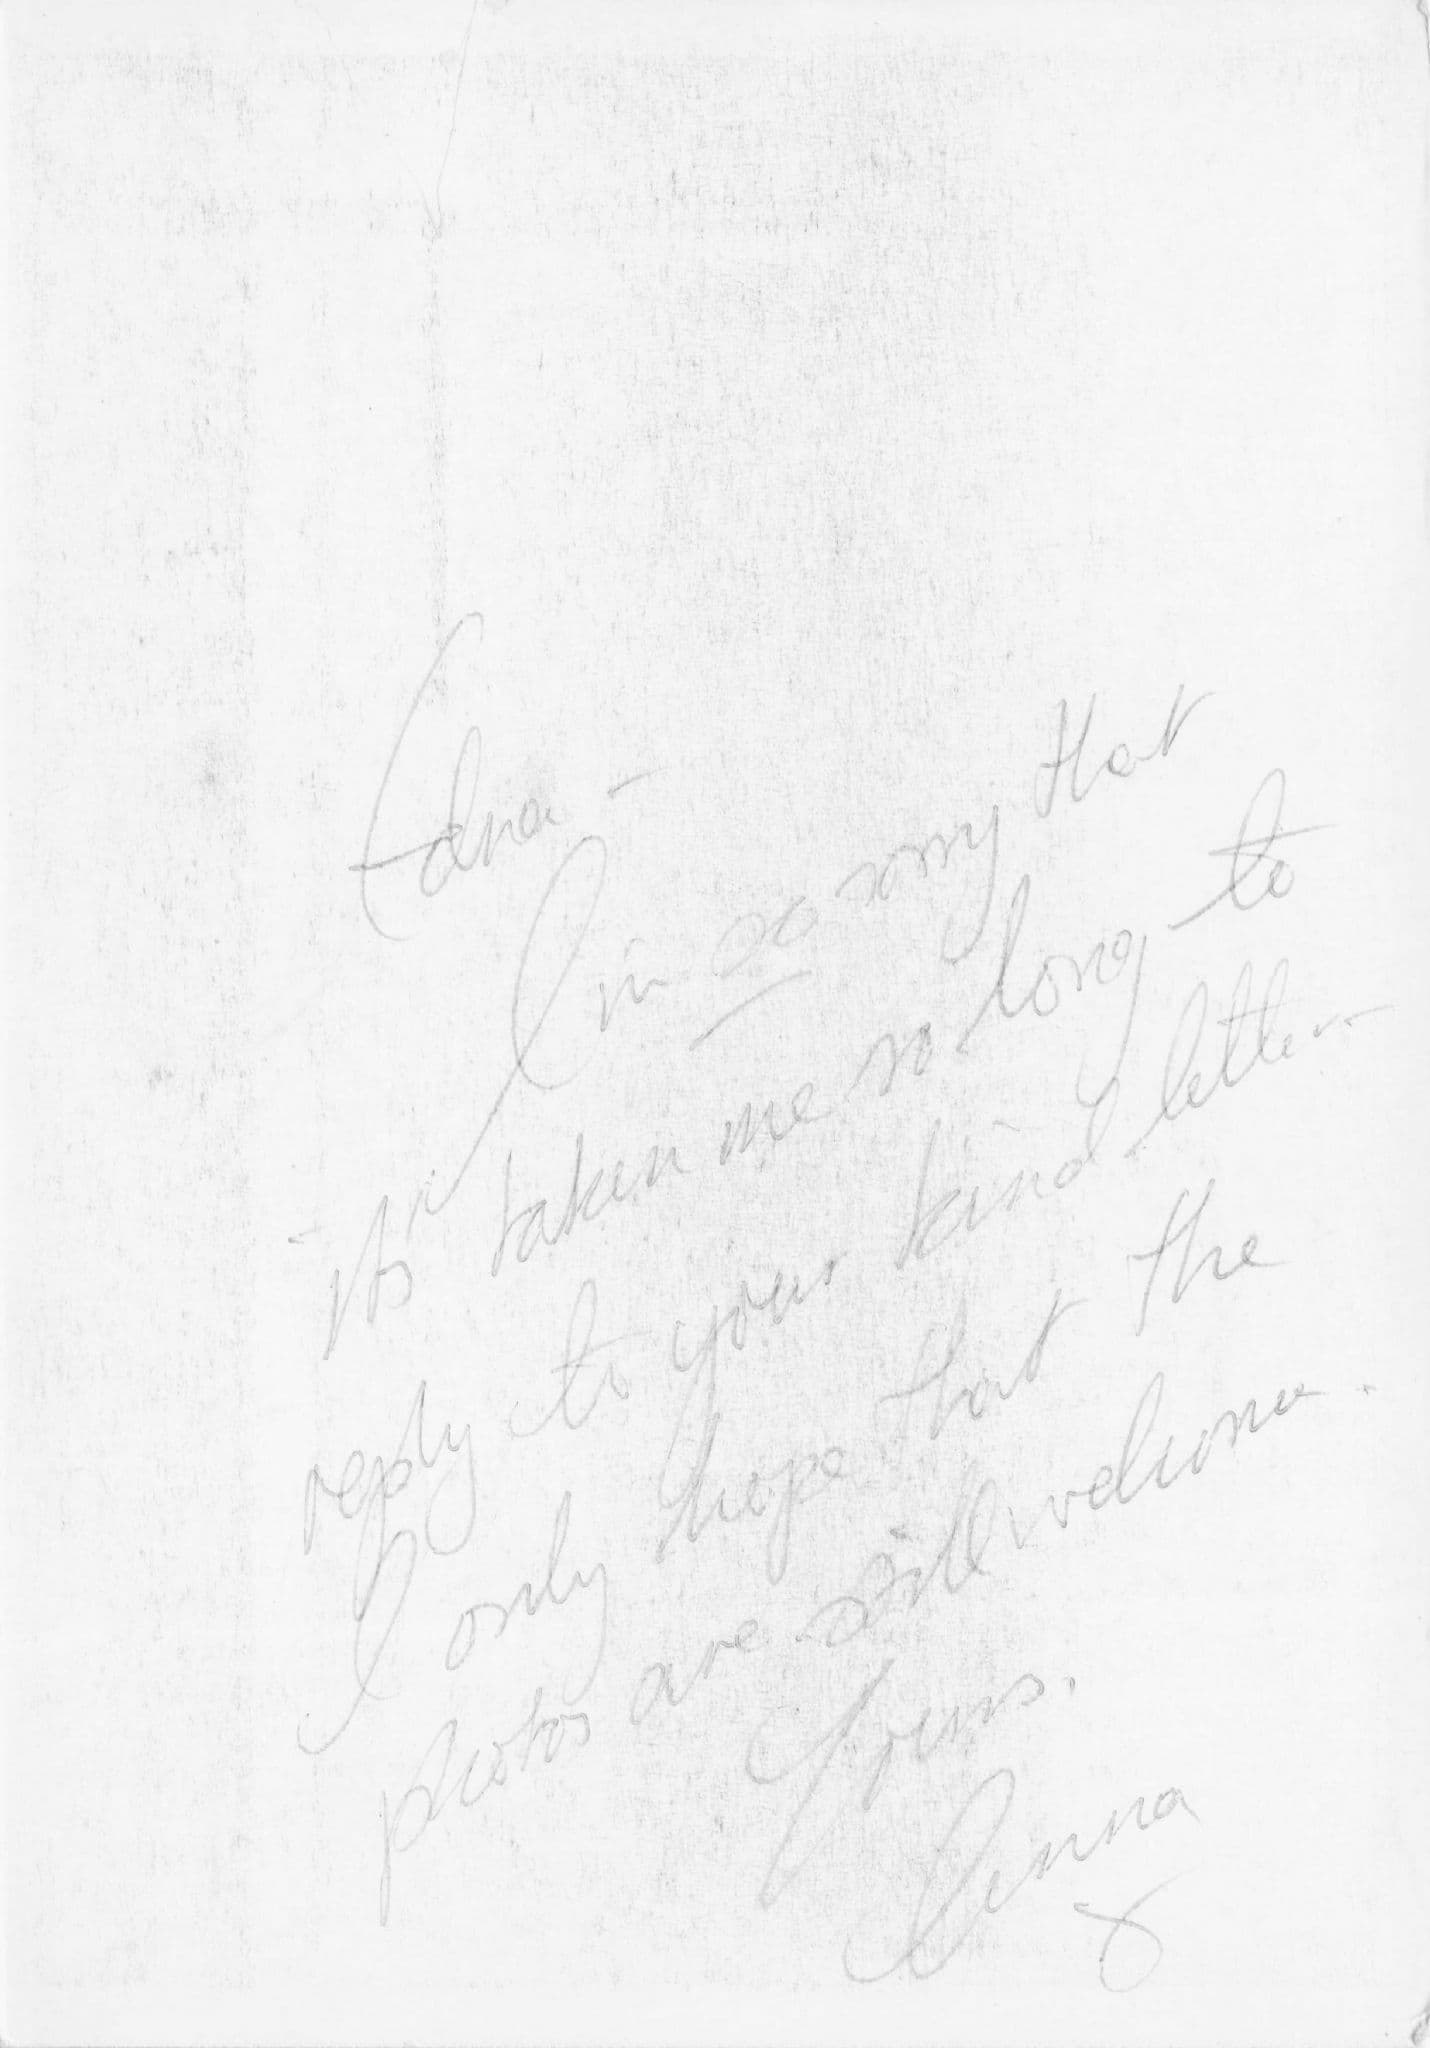 Edna –
I'm so sorry that
it's taken me so long to
reply to your kind letter –
I only hope that the
photos are still welcome.
Yours,
Anna